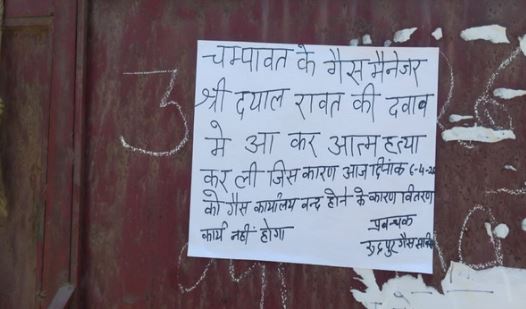 चम्पावत के गैस मैनेजर
श्री दयाल रावत की दवाब
मे आ कर आत्महत्या
कर ली जिस कारण आज दिनांक 6-4-20
को गैस कार्यालय वन्द होने के कारण वितरण
कार्य नहीं होगा
प्रबन्धक
रुद्रपुर गैस सर्विस
3